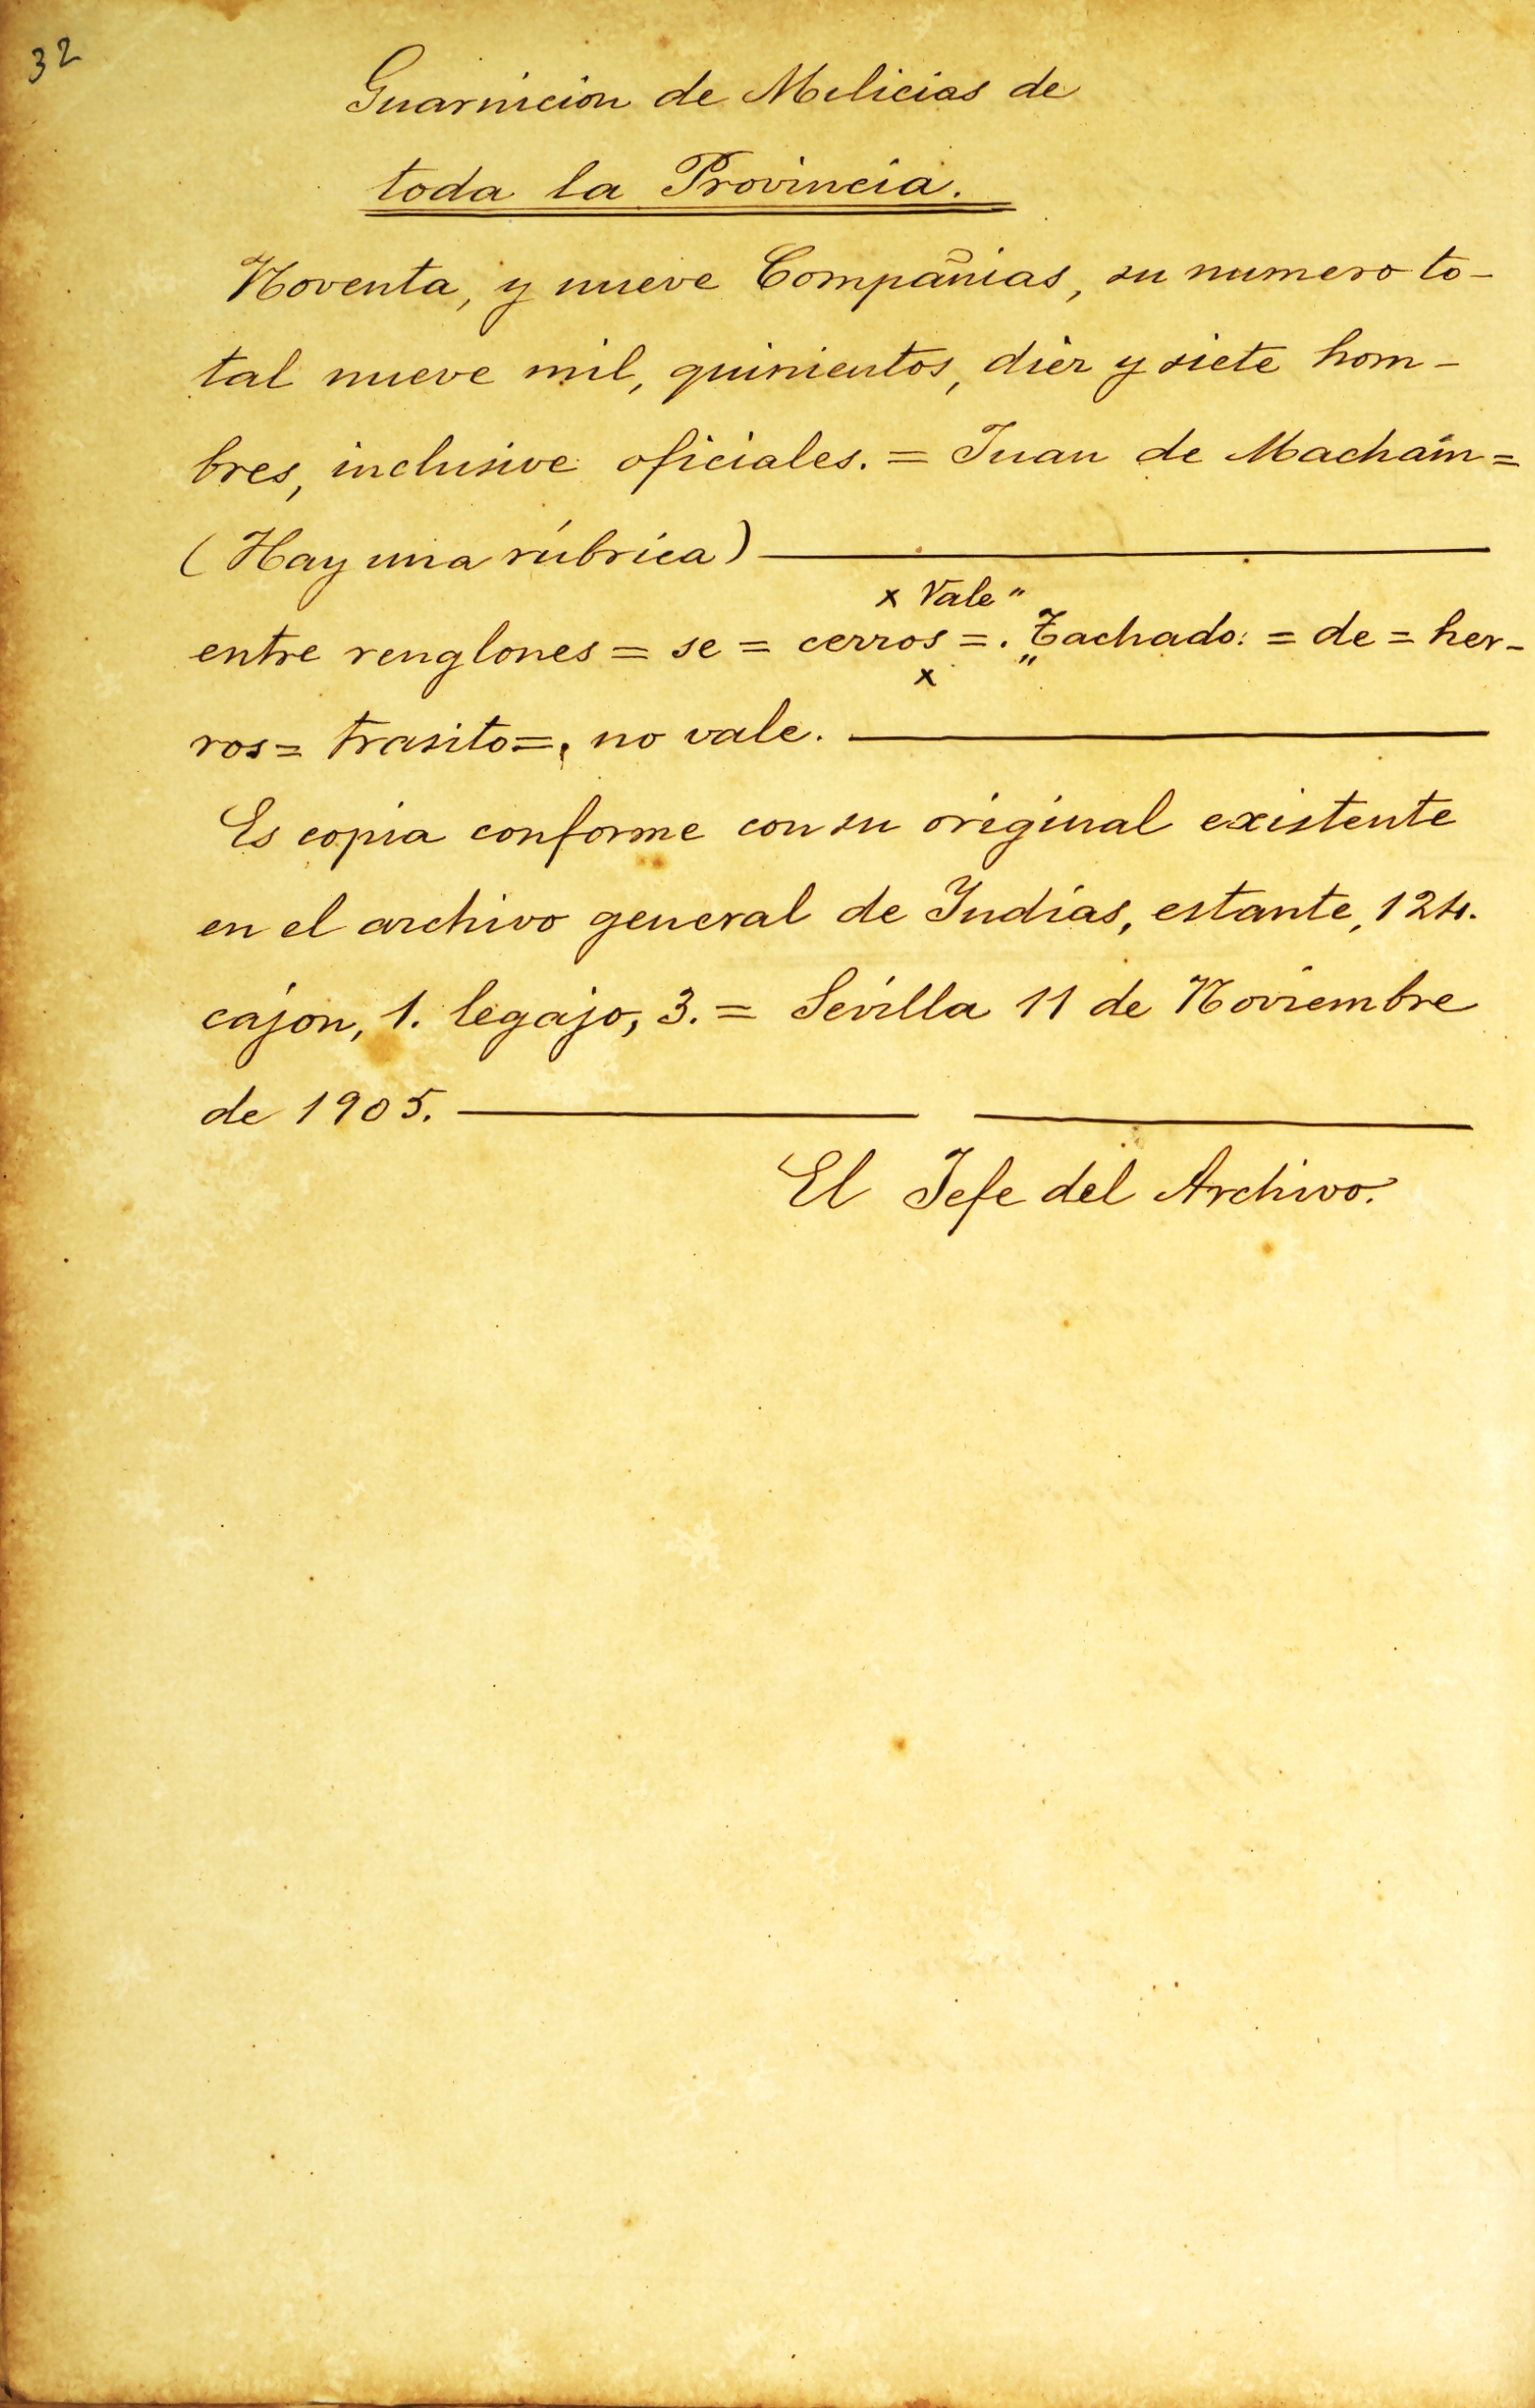 32
Guarnicion de Milicias de
toda la Provincia.
Noventa, y nueve Compañias, su numero to-
tal nueve mil, quinientos, diez y siete hom-
bres, inclusive oficiales. = Juan de Machain =
(Hay una rúbrica)
x Vale"
entre renglones = se = cerros =. "Tachado: = de = her-
x
ros = trasito =, no vale.
Es copia conforme con su original existente
en el archivo general de Indias, estante, 124.
cajon, 1. legajo, 3. = Sevilla 11 de Noviembre
de 1905.
El Jefe del Archivo.